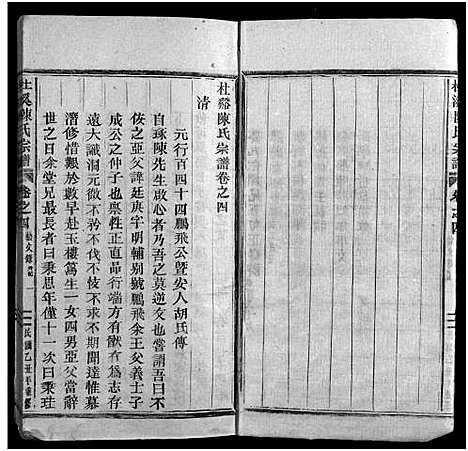 杜谿陳氏宗譜卷之四
清
元行百四十四鵬飛公暨安人胡氏傳
自琢陳先生啟心者乃吾之莫逆交也嘗謂吾曰不
佞之亞父諱廷庚字明輔别號鵬飛余王父義士子
成公之仲子也禀性正直品行端方有猷有為志存
遠大識洞元微不伐不技不求不期聞達惟慕
潛修惜艱於數早赴玉樓爲生一女四男亞父當辭
世之日余堂兄最長者曰秉思年僅十一次曰秉㺵
杜谿陳氏宗譜
卷之四
民國乙丑年重修